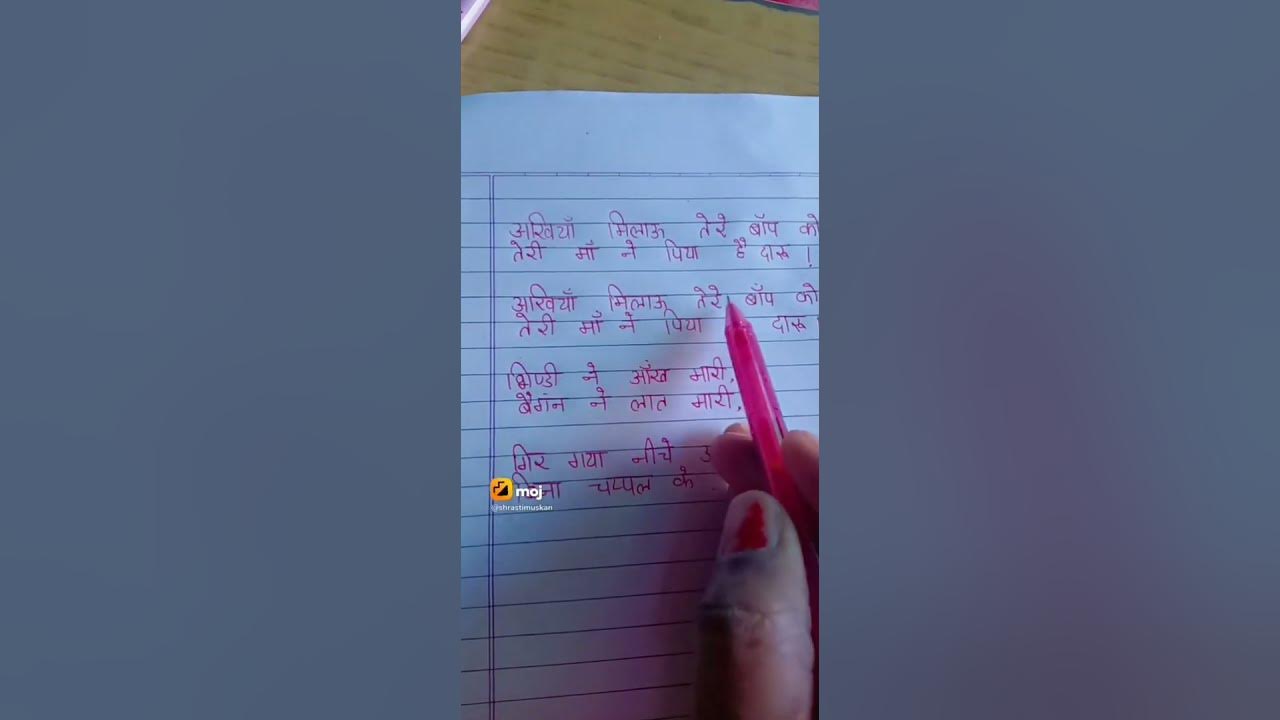 अखियाँ मिलाऊ तेरे बाँप को
तेरी माँ ने पिया है दारू !
अखियाँ मिलाऊ तेरे बाँप को
तेरी माँ ने पिया दारू !
भिण्डी ने आँख मारी,
बैगंन ने लात मारी,
गिर गया नीचे
बिना चप्पल के
moj
@shrastimuskan